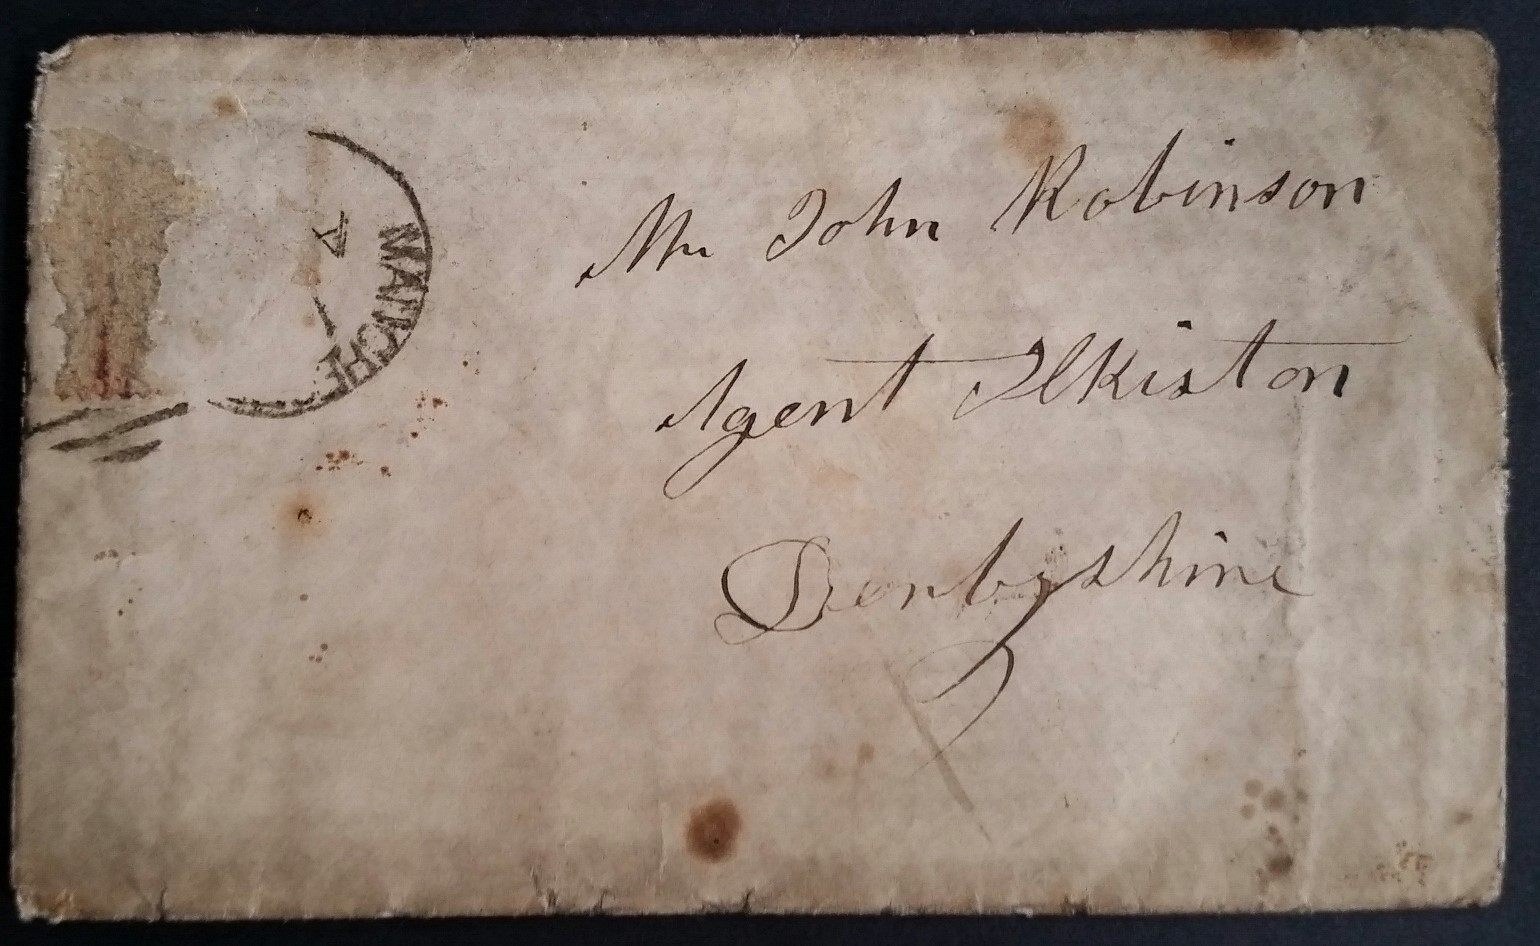 MANCHE
A
Mr John Robinson
Agent Ilkiston
Derbyshire